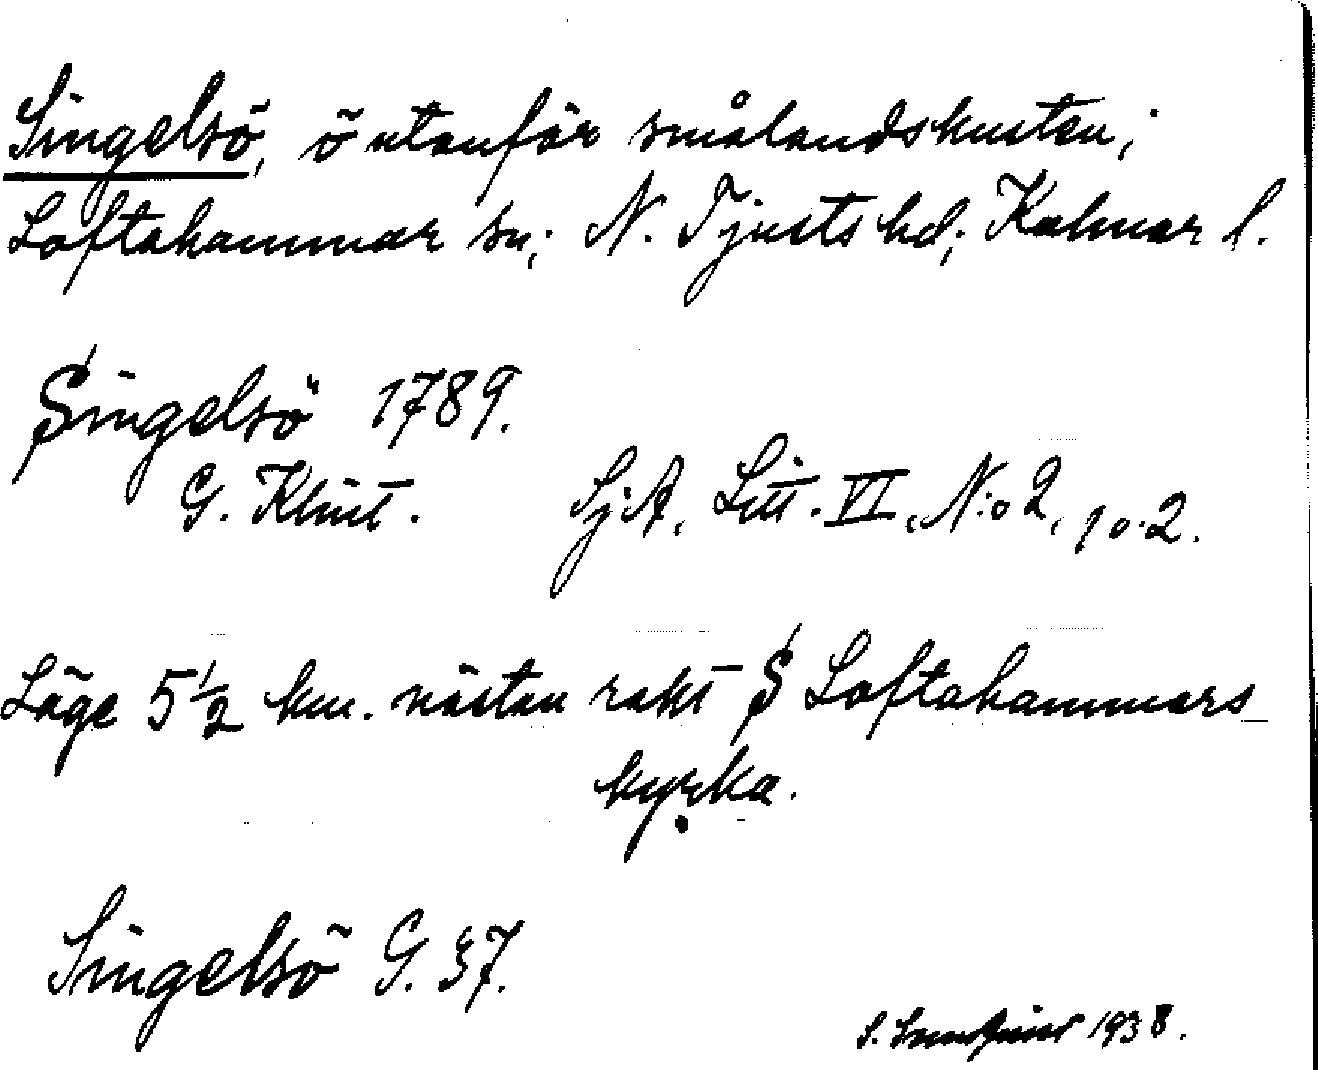 Singelsö, ö utanför smålandskusten;
Loftahammar sn; N. Tjusts hd; Kalmar l.
Singelsö 1789.
G. Klint. Sj.A, Litt. VI, N:o 2, 10.2.
Läge 5 1/2 km. nästan rakt S Loftahammars
kyrka.
Singelsö G. 37.
S. 1938.